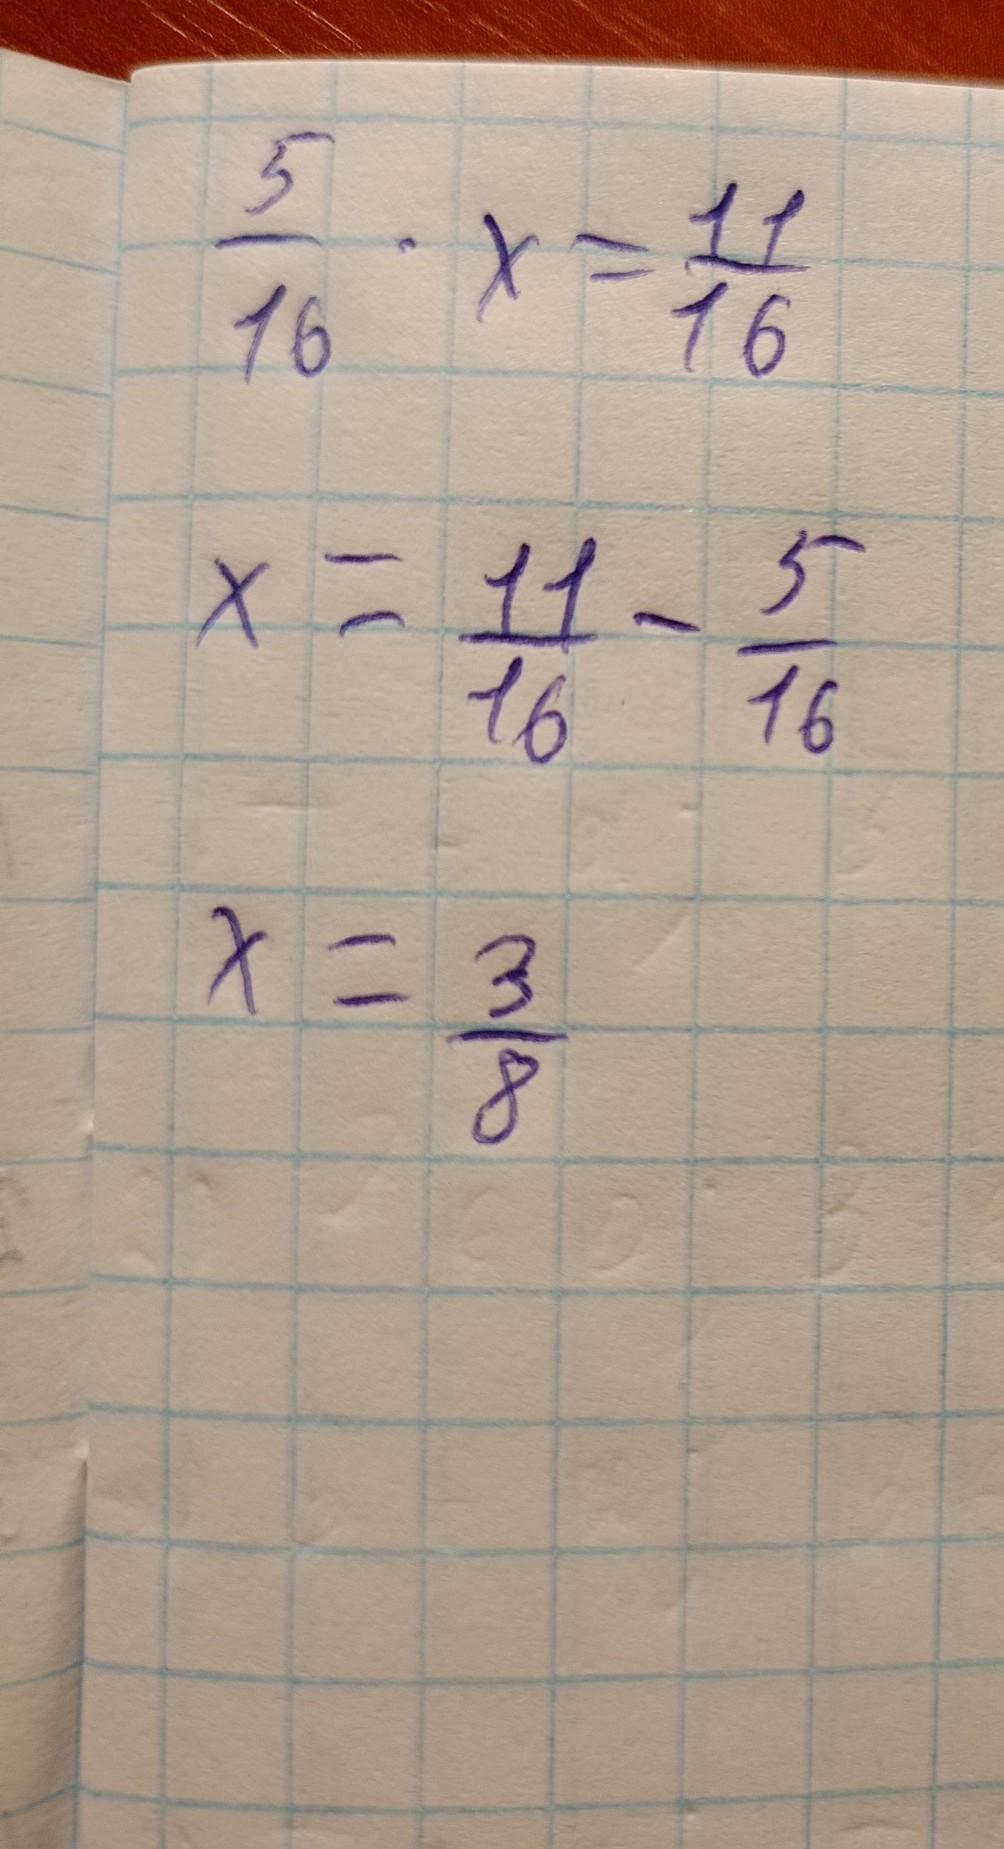 5/16 · x = 11/16
x = 11/16 - 5/16
x = 3/8